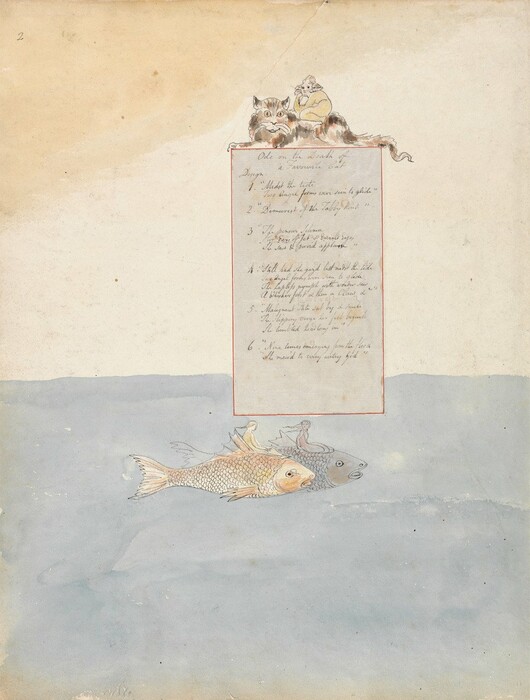 2
Ode on the Death of
a Favourite Cat
Design
1 "Midst the tide
Two Angel forms were seen to glide"
2 "Demurest of the Tabby Kind"
3 "The pensive Selima
Her Ears of Jet & Emrald Eyes
She saw & purr'd applause"
4 "Still had she gazd but midst the tide
Two Angel forms were seen to glide
The hapless nymph with wonder saw
A Whisker first & then a Claw &c"
5 "Malignant Fate sat by & smild
The slippery verge her feet beguild
She tumbled headlong in"
6 "Nine times emerging from the flood
She mewd to every watry God"